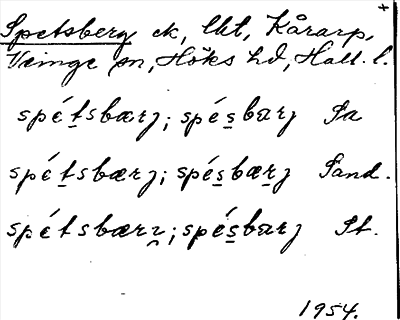 +
Spetsberg ek, lht, Kårarp,
Veinge sn, Höks hd, Hall. l.
spétsbærj; spésbarj Sa
spétsbærj; spésbærj Sand.
spétsbærj; spésbarj St.
1954.